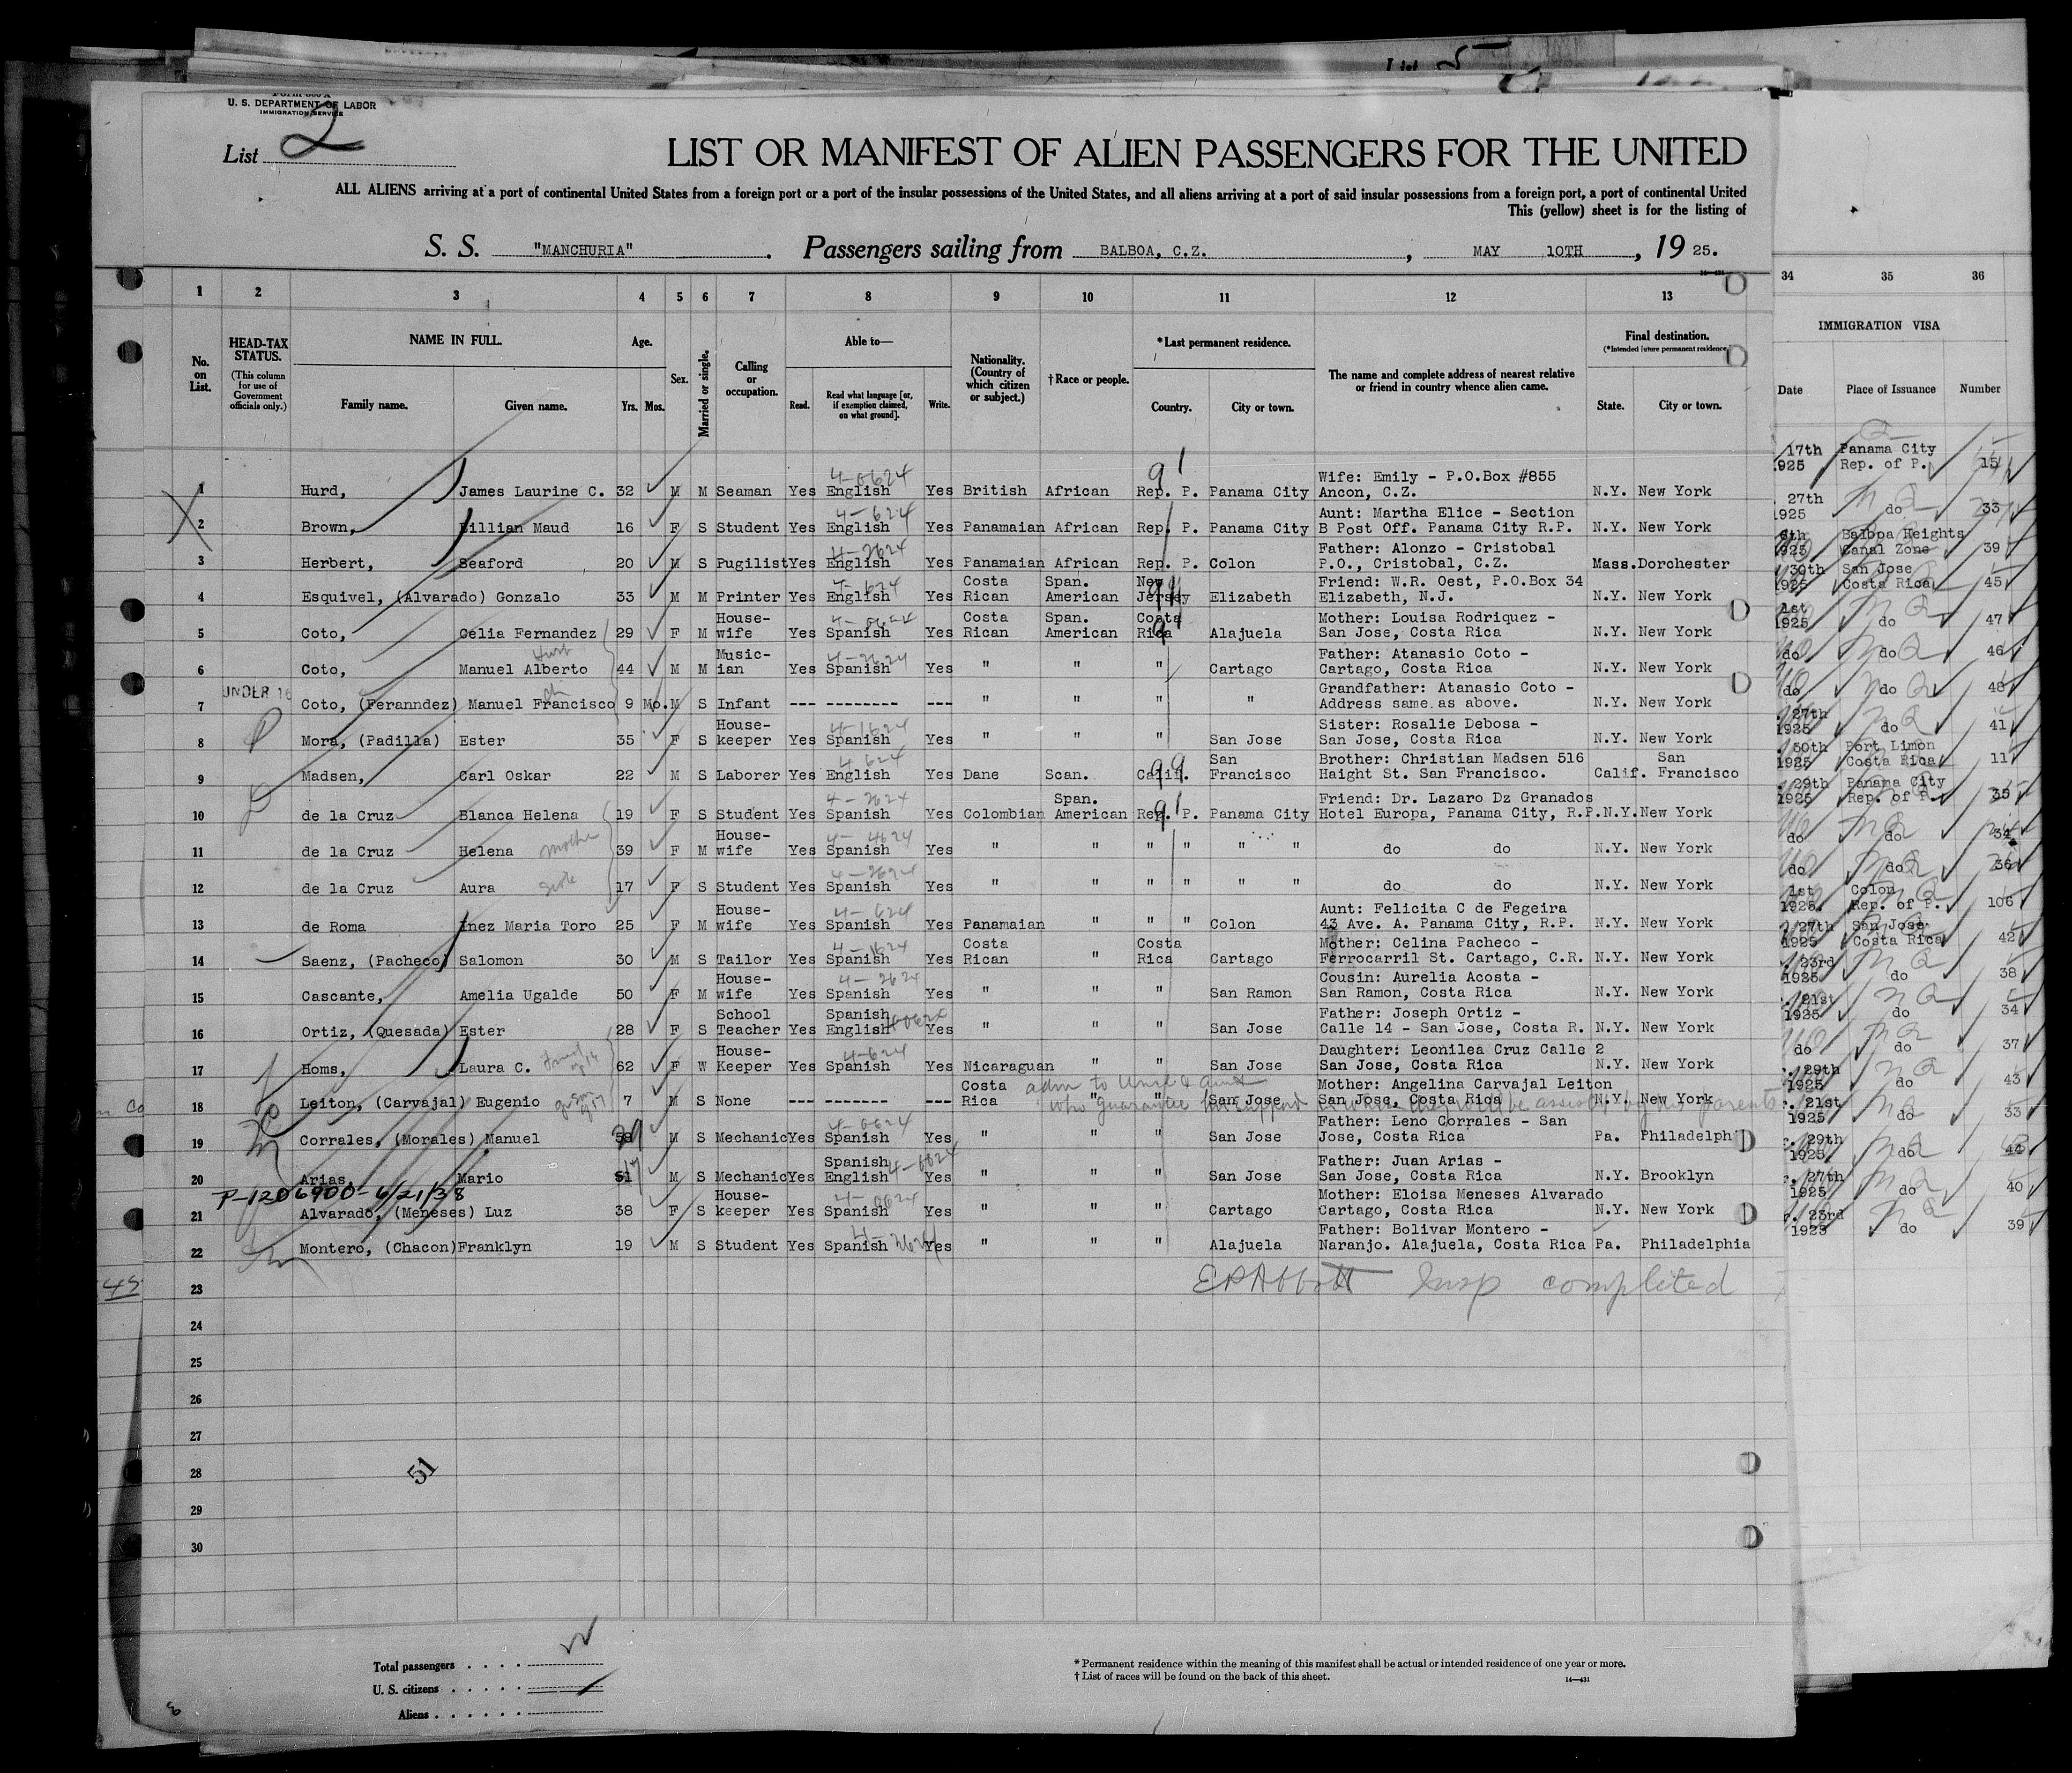 U. S. DEPARTMENT OF LABOR
IMMIGRATION SERVICE
List 2
LIST OR MANIFEST OF ALIEN PASSENGERS FOR THE UNITED
ALL ALIENS arriving at a port of continental United States from a foreign port or a port of the insular possessions of the United States, and all aliens arriving at a port of said insular possessions from a foreign port, a port of continental United
This (yellow) sheet is for the listing of
S. S. "MANCHURIA". Passengers sailing from BALBOA, C.Z., MAY 10TH, 1925.
1 2 3 4 5 6 7 8 9 10 11 12 13 34 35 36
No. on List. HEAD-TAX STATUS. (This column for use of Government officials only.) NAME IN FULL. Family name. Given name. Age. Yrs. Mos. Sex. Married or single. Calling or occupation. Able to— Read. Read what language [or, if exemption claimed, on what ground]. Write. Nationality. (Country of which citizen or subject.) †Race or people. *Last permanent residence. Country. City or town. The name and complete address of nearest relative or friend in country whence alien came. Final destination. (*Intended future permanent residence) State. City or town. IMMIGRATION VISA Date Place of Issuance Number
1 Hurd, James Laurine C. 32 M M Seaman Yes English Yes British African Rep. P. Panama City Wife: Emily - P.O.Box #855 Ancon, C.Z. N.Y. New York 17th 1925 Panama City Rep. of P. 15
2 Brown, Lillian Maud 16 F S Student Yes English Yes Panamaian African Rep. P. Panama City Aunt: Martha Elice - Section B Post Off. Panama City R.P. N.Y. New York 27th 1925 do 33
3 Herbert, Seaford 20 M S Pugilist Yes English Yes Panamaian African Rep. P. Colon Father: Alonzo - Cristobal P.O., Cristobal, C.Z. Mass. Dorchester 6th 1925 Balboa Heights Canal Zone 39
4 Esquivel, (Alvarado) Gonzalo 33 M M Printer Yes English Yes Costa Rican Span. American New Jersey Elizabeth Friend: W.R. Oest, P.O.Box 34 Elizabeth, N.J. N.Y. New York 30th 1925 San Jose Costa Rica 45
5 Coto, Celia Fernandez 29 F M House-wife Yes Spanish Yes Costa Rican Span. American Costa Rica Alajuela Mother: Louisa Rodriquez - San Jose, Costa Rica N.Y. New York 1st 1925 do 47
6 Coto, Manuel Alberto 44 M M Music-ian Yes Spanish Yes " " " Cartago Father: Atanasio Coto - Cartago, Costa Rica N.Y. New York do do 46
UNDER 16
7 Coto, (Feranndez) Manuel Francisco 9 Mo. M S Infant --- -------- --- " " " " Grandfather: Atanasio Coto - Address same as above. N.Y. New York do do 48
8 Mora, (Padilla) Ester 35 F S House-keeper Yes Spanish Yes " " " San Jose Sister: Rosalie Debosa - San Jose, Costa Rica N.Y. New York 27th 1925 do 41
9 Madsen, Carl Oskar 22 M S Laborer Yes English Yes Dane Scan. Calif. San Francisco Brother: Christian Madsen 516 Haight St. San Francisco. Calif. San Francisco 30th 1925 Port Limon Costa Rica 11
10 de la Cruz Blanca Helena 19 F S Student Yes Spanish Yes Colombian Span. American Rep. P. Panama City Friend: Dr. Lazaro Dz Granados Hotel Europa, Panama City, R.P. N.Y. New York 29th 1925 Panama City Rep. of P. 35
11 de la Cruz Helena Mother 39 F M House-wife Yes Spanish Yes " " " " " " do do N.Y. New York do do 34
12 de la Cruz Aura 17 F S Student Yes Spanish Yes " " " " " " do do N.Y. New York do do 36
13 de Roma Inez Maria Toro 25 F M House-wife Yes Spanish Yes Panamaian " " " Colon Aunt: Felicita C de Fegeira 43 Ave. A. Panama City, R.P. N.Y. New York 1st 1925. Colon Rep. of P. 106
14 Saenz, (Pacheco) Salomon 30 M S Tailor Yes Spanish Yes Costa Rican " Costa Rica Cartago Mother: Celina Pacheco - Ferrocarril St. Cartago, C.R. N.Y. New York 27th 1925 San Jose Costa Rica 42
15 Cascante, Amelia Ugalde 50 F M House-wife Yes Spanish Yes " " " San Ramon Cousin: Aurelia Acosta - San Ramon, Costa Rica N.Y. New York 23rd 1925 do 38
16 Ortiz, (Quesada) Ester 28 F S School Teacher Yes Spanish English Yes " " " San Jose Father: Joseph Ortiz - Calle 14 - San Jose, Costa R. N.Y. New York 21st 1925 do 34
17 Homs, Laura C. 62 F W House-Keeper Yes Spanish Yes Nicaraguan " " San Jose Daughter: Leonilea Cruz Calle 2 San Jose, Costa Rica N.Y. New York do do 37
18 Leiton, (Carvajal) Eugenio 7 M S None --- ------- --- Costa Rica " " San Jose Mother: Angelina Carvajal Leiton San Jose, Costa Rica N.Y. New York 29th 1925 do 43
adm to Uncle & aunt
who guarantee his support
19 Corrales, (Morales) Manuel M S Mechanic Yes Spanish Yes " " " San Jose Father: Leno Corrales - San Jose, Costa Rica Pa. Philadelph 21st 1925 do 33
20 Arias, Mario M S Mechanic Yes Spanish English Yes " " " San Jose Father: Juan Arias - San Jose, Costa Rica N.Y. Brooklyn 29th 1925 do 44
P-1206900-6/21/38
21 Alvarado, (Meneses) Luz 38 F S House-keeper Yes Spanish Yes " " " Cartago Mother: Eloisa Meneses Alvarado Cartago, Costa Rica N.Y. New York 27th 1925 do 40
22 Montero, (Chacon) Franklyn 19 M S Student Yes Spanish Yes " " " Alajuela Father: Bolivar Montero - Naranjo. Alajuela, Costa Rica Pa. Philadelphia 23rd 1925 do 39
23 EPAbbott Insp completed
24
25
26
27
28
29
30
51
Total passengers
U. S. citizens
Aliens
* Permanent residence within the meaning of this manifest shall be actual or intended residence of one year or more.
† List of races will be found on the back of this sheet.
14—431